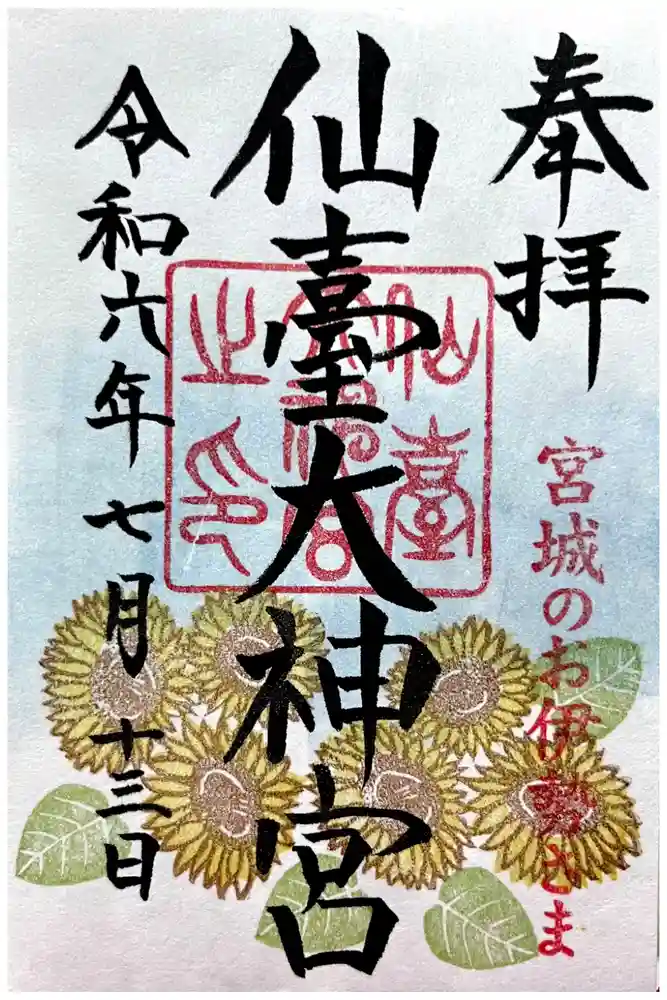 奉拝
宮城のお伊勢さま
仙臺大神宮
仙臺大神宮之印
令和六年七月十三日